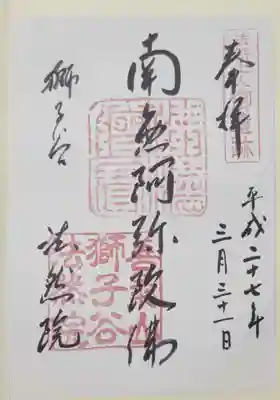 奉拝
平成二十七年
三月三十一日
南無阿弥陀佛
獅子谷
法然院
獅子谷
法然院